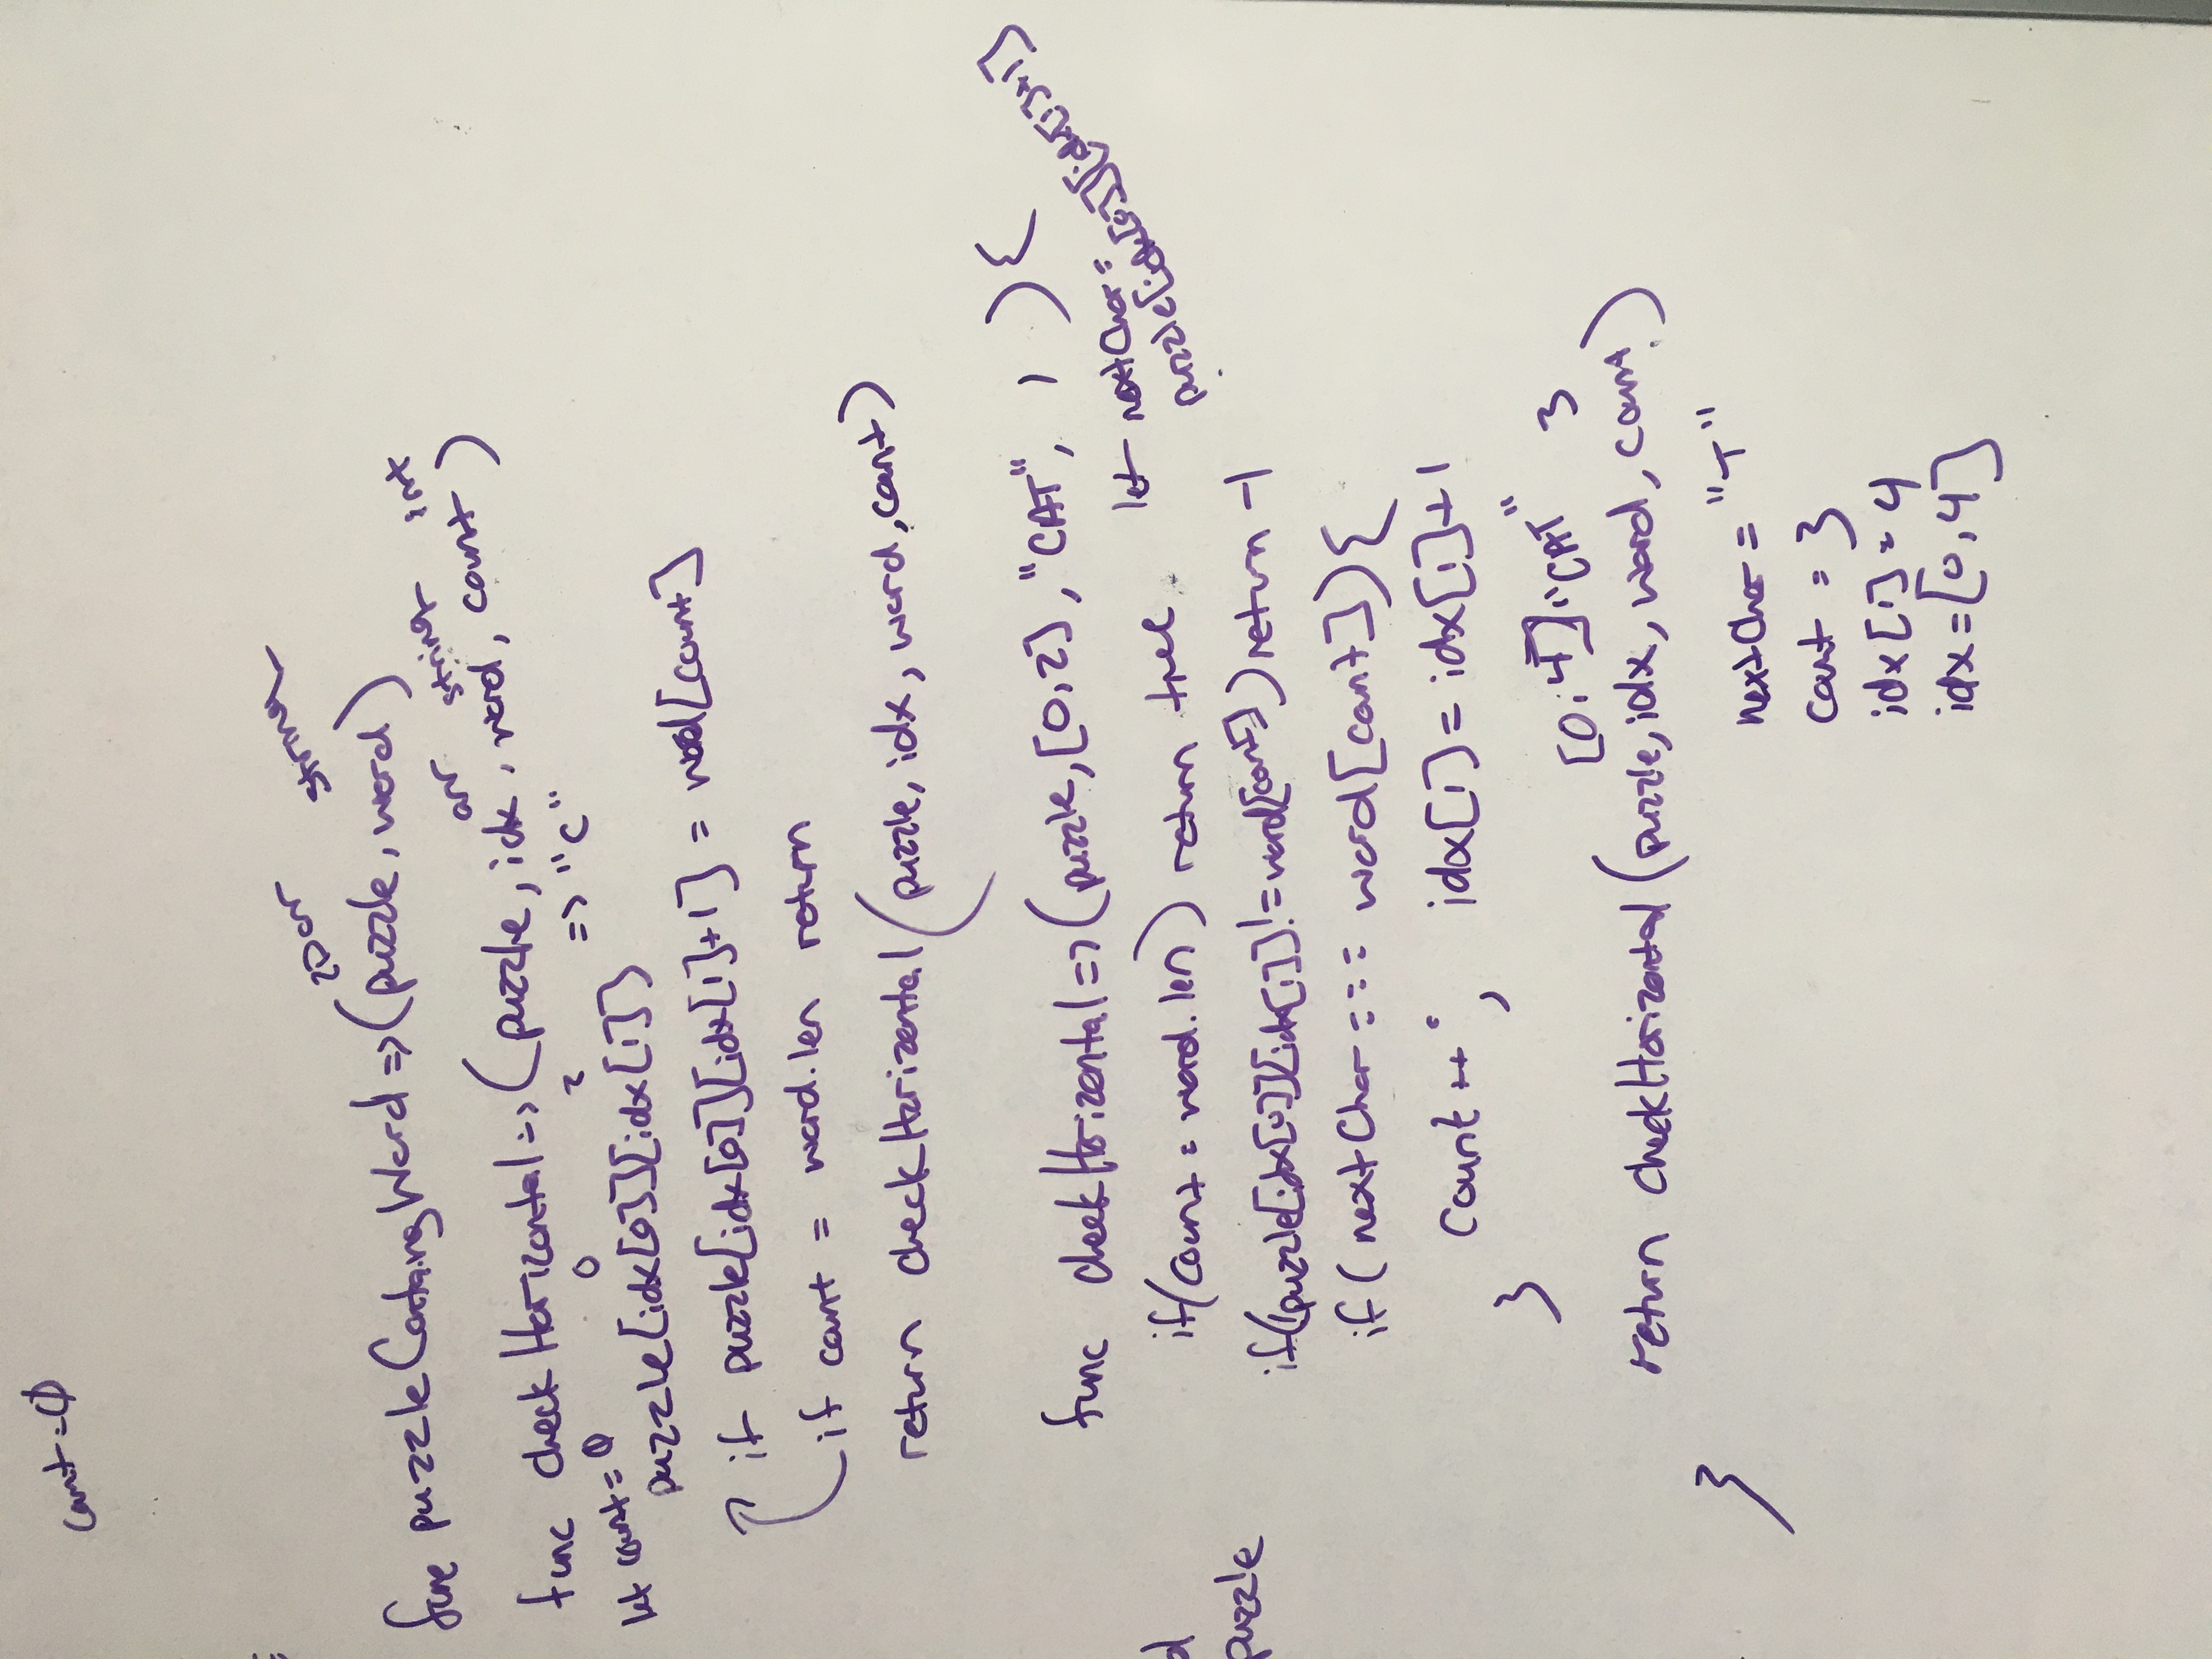 count = 0
2D arr string
func puzzleContaingWord => (puzzle, word)
arr string int
func checkHorizontal => (puzzle, idx, word, count)
let count = 0
0 2 => "C"
puzzle[idx[0]][idx[1]]
if puzzle[idx[0]][idx[1]+1] = word[count]
if count = word.len return
return checkHorizontal(puzzle, idx, word, count)
func checkHorizontal => (puzzle, [0,2], "CAT", 1 ){
if(count = word.len) return true
let nextChar =
puzzle[idx[0]][idx[1]+1]
d
puzzle
if(!puzzle[idx[0]][idx[1]] != word[count]) return -1
if (nextChar === word[count]){
count++; idx[1] = idx[1]+1
}
[0,4] "CAT" 3
return checkHorizontal(puzzle, idx, word, count)
}
nextChar = "T"
count = 3
idx[1] = 4
idx = [0,4]